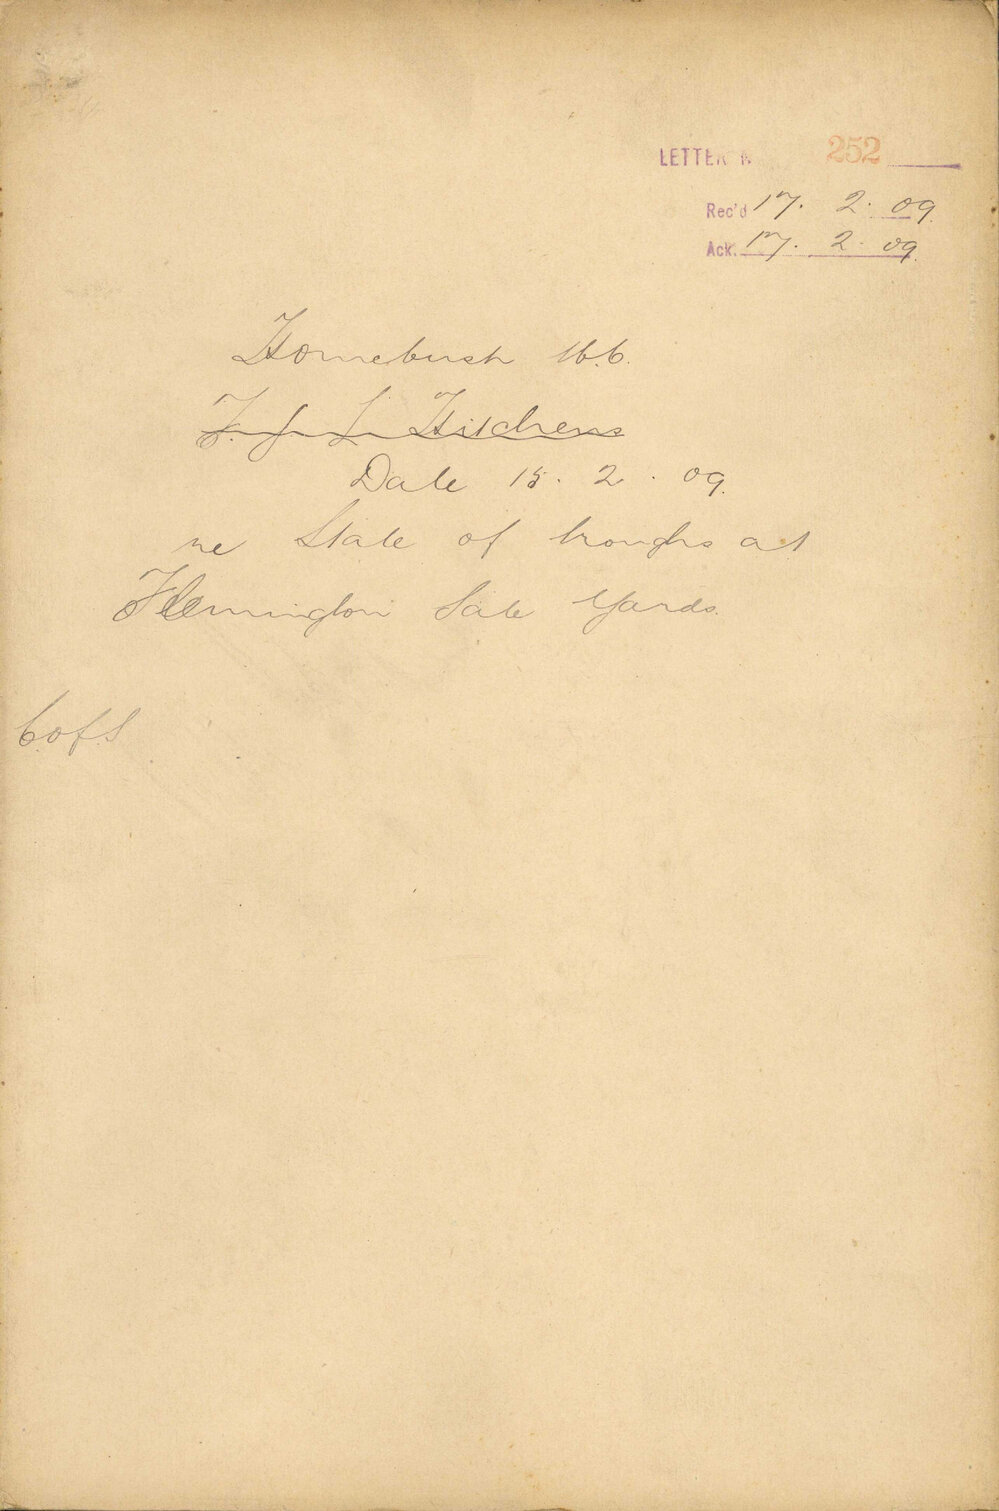 LETTER N 252
Rec'd 17. 2. 09.
Ack. 17. 2. 09.
Homebush 16.6.
F. J. L. Hitchens
Date 15. 2. 09.
re State of troughs at
Flemington Sale Yards.
C. of S